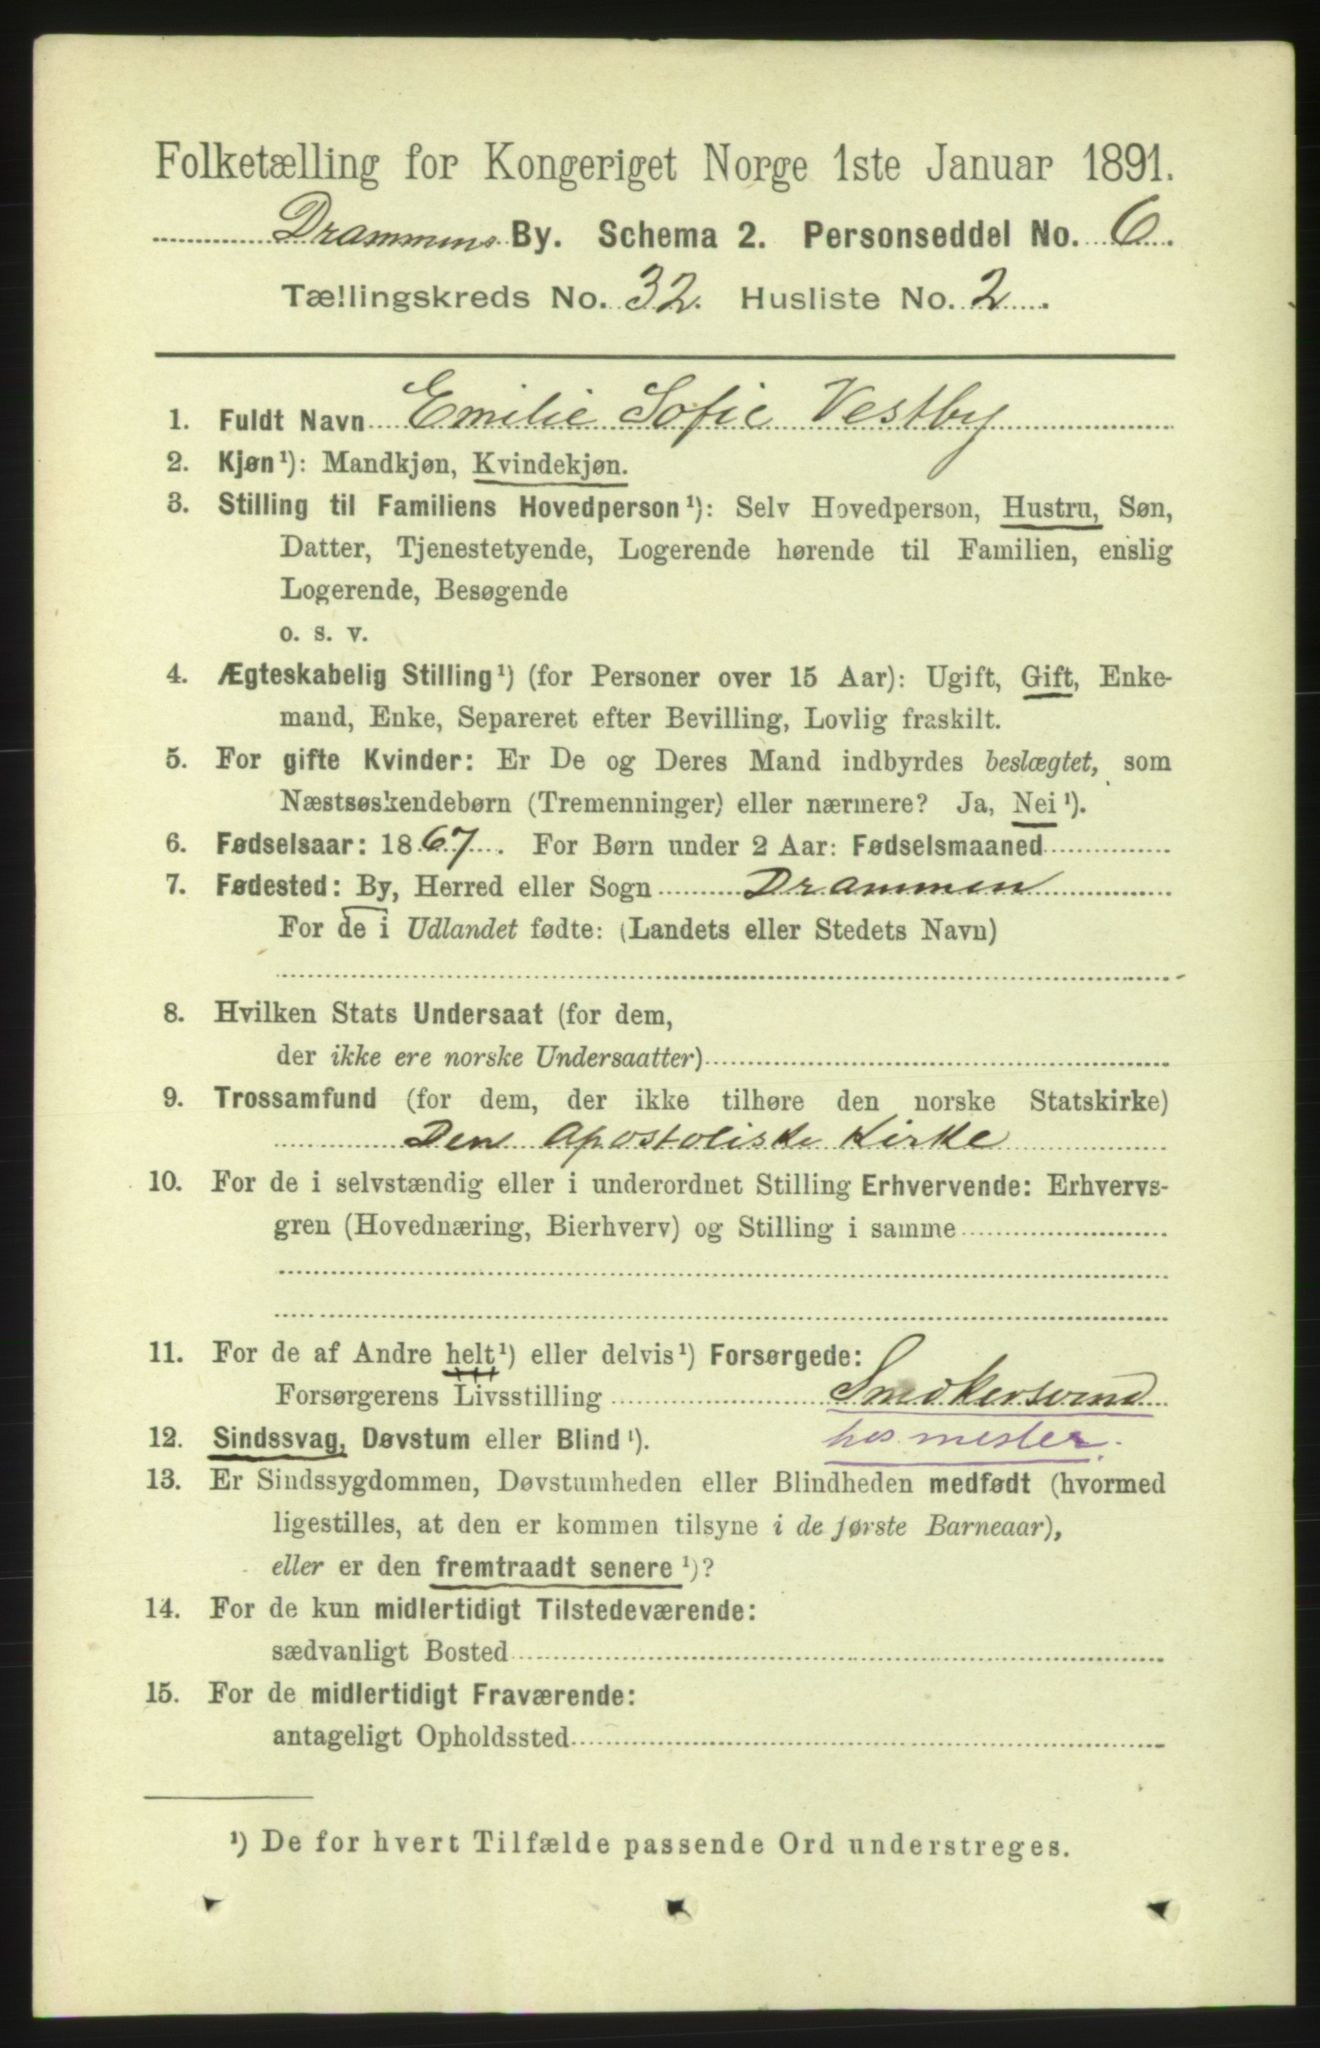 Folketælling for Kongeriget Norge 1ste Januar 1891.
Drammens By. Schema 2. Personseddel No. 6.
Tællingskreds No. 32. Husliste No. 2.
1. Fuldt Navn Emilie Sofie Vestby
2. Kjøn¹): Mandkjøn, Kvindekjøn.
3. Stilling til Familiens Hovedperson¹): Selv Hovedperson, Hustru, Søn,
Datter, Tjenestetyende, Logerende hørende til Familien, enslig
Logerende, Besøgende
o. s. v.
4. Ægteskabelig Stilling¹) (for Personer over 15 Aar): Ugift, Gift, Enke-
mand, Enke, Separeret efter Bevilling, Lovlig fraskilt.
5. For gifte Kvinder: Er De og Deres Mand indbyrdes beslægtet, som
Næstsøskendebørn (Tremenninger) eller nærmere? Ja, Nei¹).
6. Fødselsaar: 1867. For Børn under 2 Aar: Fødselsmaaned
7. Fødested: By, Herred eller Sogn Drammen
For de i Udlandet fødte: (Landets eller Stedets Navn)
8. Hvilken Stats Undersaat (for dem,
der ikke ere norske Undersaatter)
9. Trossamfund (for dem, der ikke tilhøre den norske Statskirke)
Den Apostoliske Kirke
10. For de i selvstændig eller i underordnet Stilling Erhvervende: Erhvervs-
gren (Hovednæring, Bierhverv) og Stilling i samme
11. For de af Andre helt¹) eller delvis¹) Forsørgede:
Forsørgerens Livsstilling Snedkersvend
hos mester.
12. Sindssvag, Døvstum eller Blind¹).
13. Er Sindssygdommen, Døvstumheden eller Blindheden medfødt (hvormed
ligestilles, at den er kommen tilsyne i de første Barneaar),
eller er den fremtraadt senere¹)?
14. For de kun midlertidigt Tilstedeværende:
sædvanligt Bosted
15. For de midlertidigt Fraværende:
antageligt Opholdssted
¹) De for hvert Tilfælde passende Ord understreges.